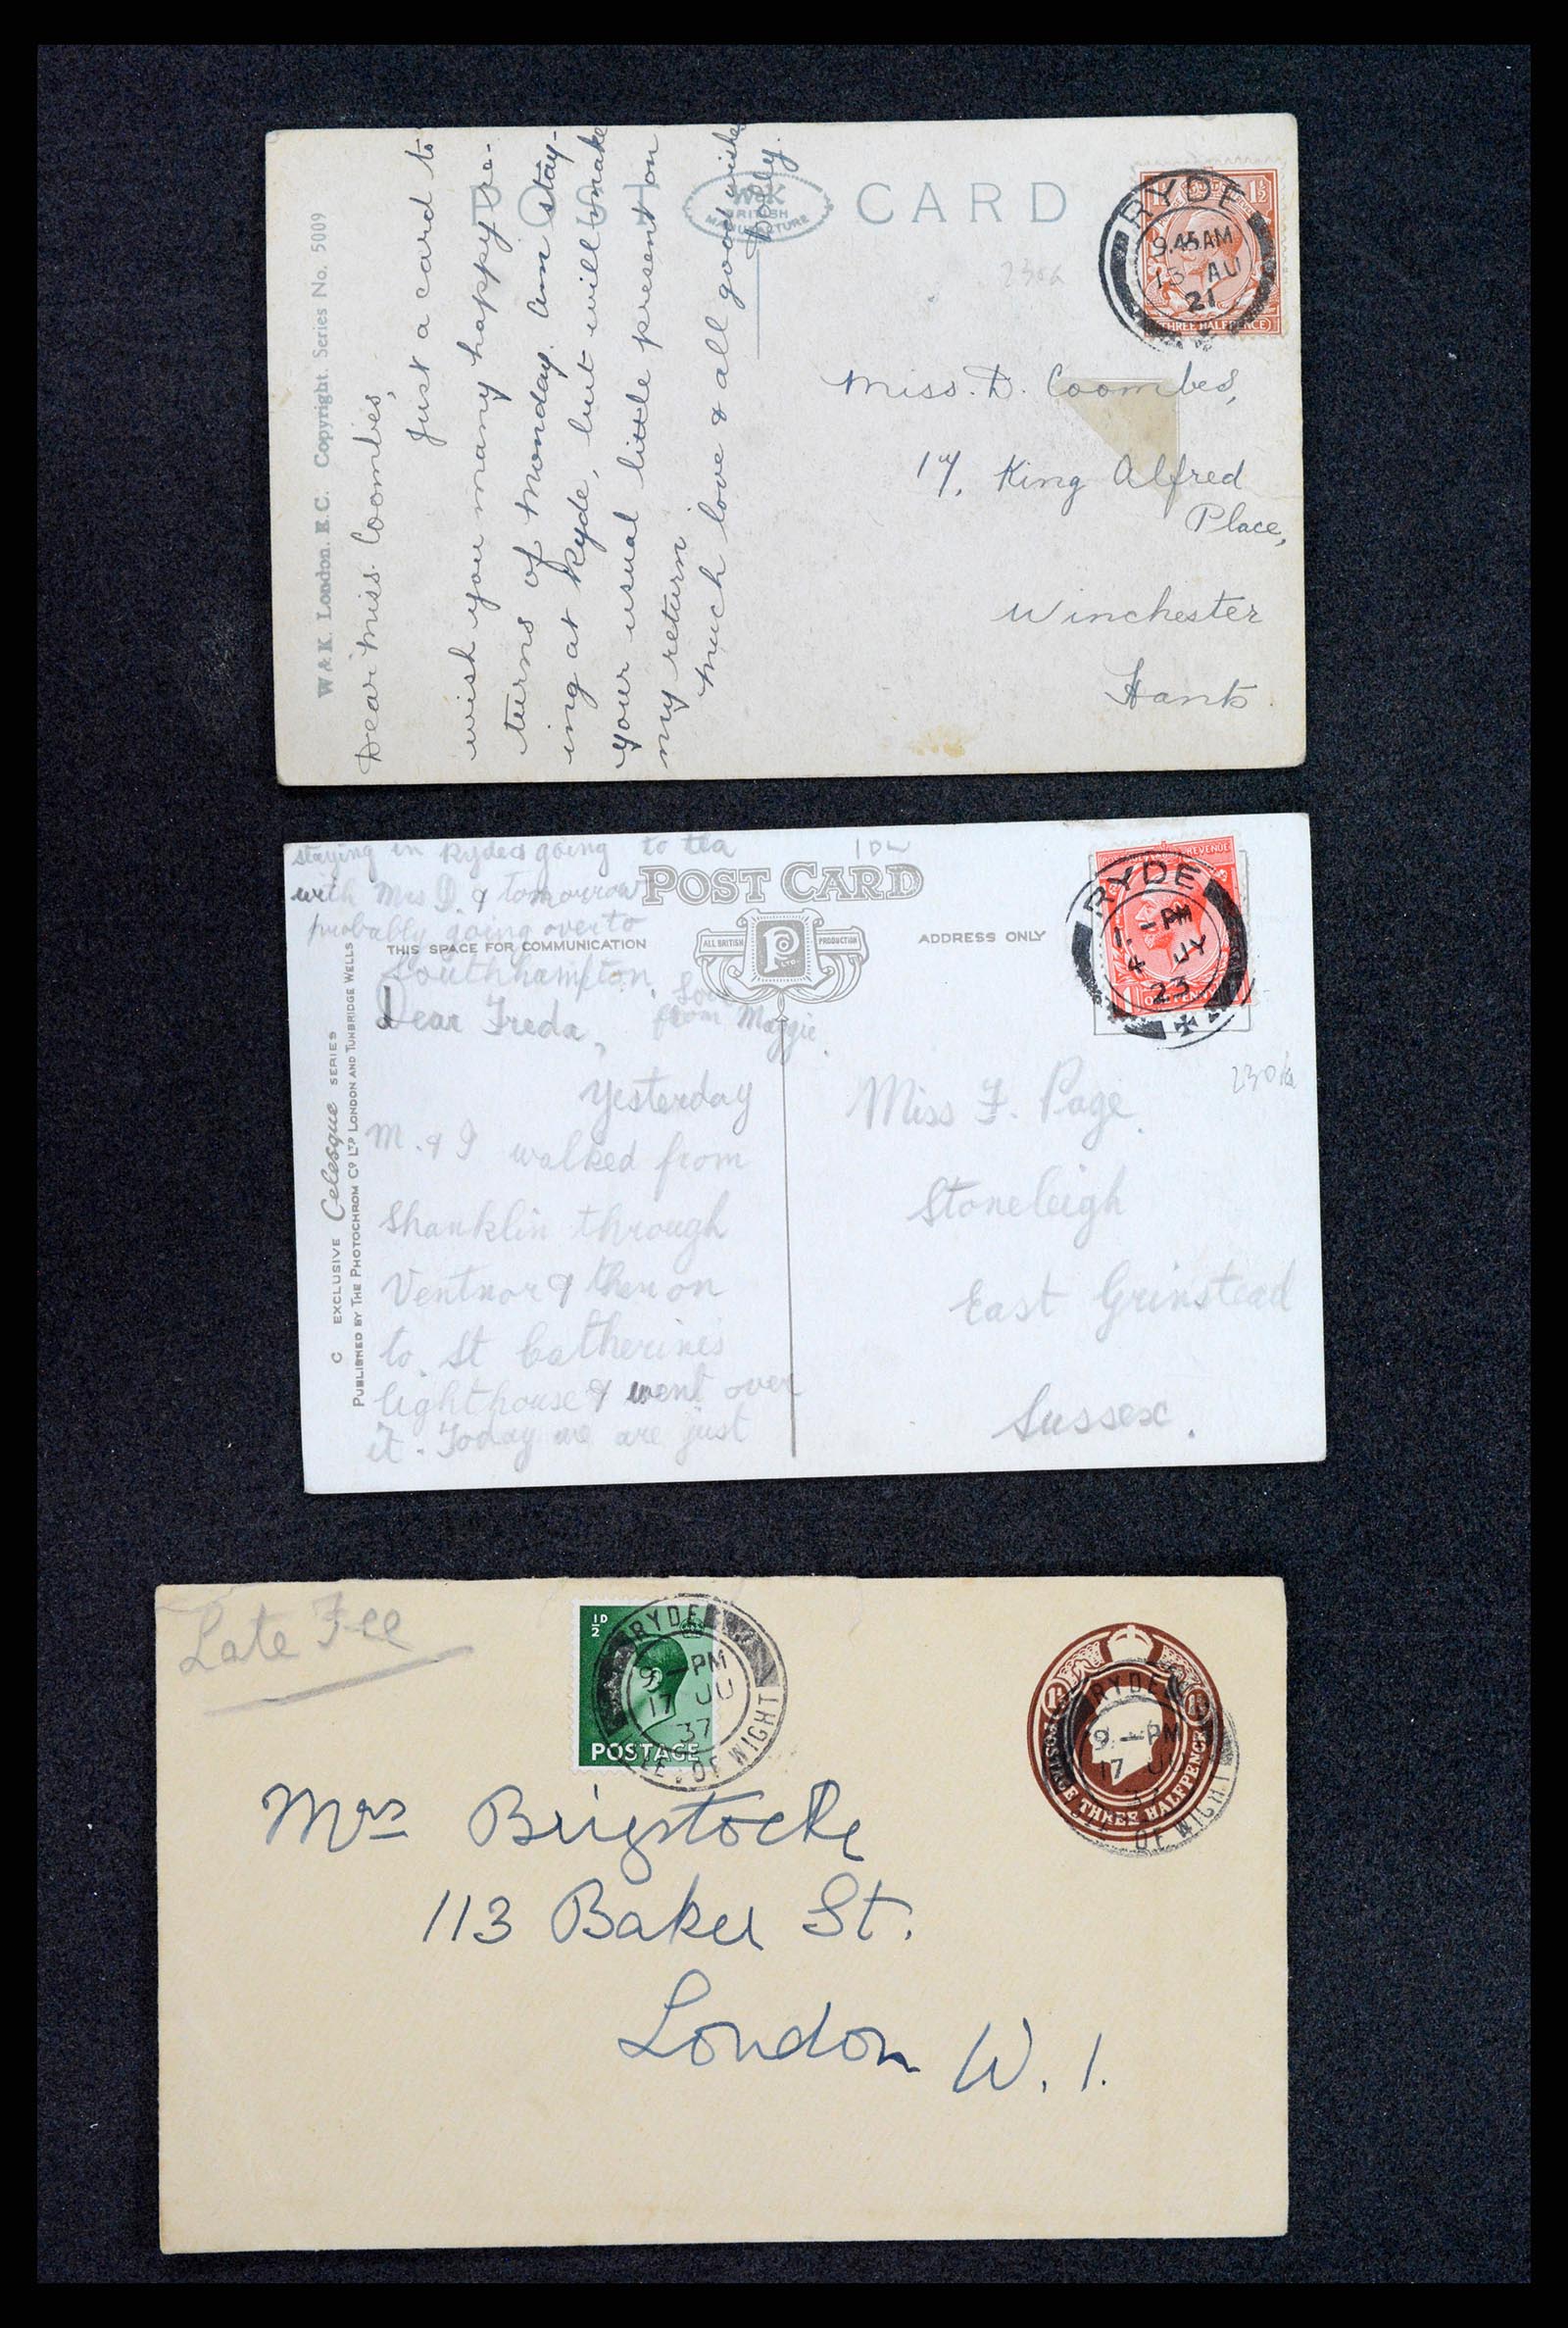 W & K. London. E.C. Copyright. Series No. 5009
POST CARD
W&K
BRITISH
MANUFACTURE
Dear Miss. Coombes,
Just a card to
wish you many happy re-
turns of Monday. Am stay-
ing at Ryde, but will make
your usual little present on
my return
Much love & all good wishes
RYDE
9.45AM
13 AU
21
1½
THREE HALFPENCE
230a
Miss. D. Coombes,
17, King Alfred
Place,
Winchester
Hants.
staying in Ryde & going to tea
with Mrs D. & tomorrow
probably going over to
Southhampton.
Love
from Maggie.
POST CARD
THIS SPACE FOR COMMUNICATION
ALL BRITISH PRODUCTION
ADDRESS ONLY
C EXCLUSIVE Celesque SERIES
PUBLISHED BY THE PHOTOCHROM CO LTD LONDON AND TUNBRIDGE WELLS
Dear Freda,
Yesterday
M. & I walked from
Shanklin through
Ventnor & then on
to St Catherines
lighthouse & went over
it. Today we are just
REVENUE
RYDE
PM
4 JY
23
Miss F. Page.
Stoneleigh
East Grinstead
Sussex.
Late Fee
½D
POSTAGE
RYDE
9 - PM
17 JU
37
ISLE. OF WIGHT
POSTAGE THREE HALFPENCE
RYDE
9 - PM
17 JU
OF WIGHT
Mrs Brigstocke
113 Baker St.
London W. 1.